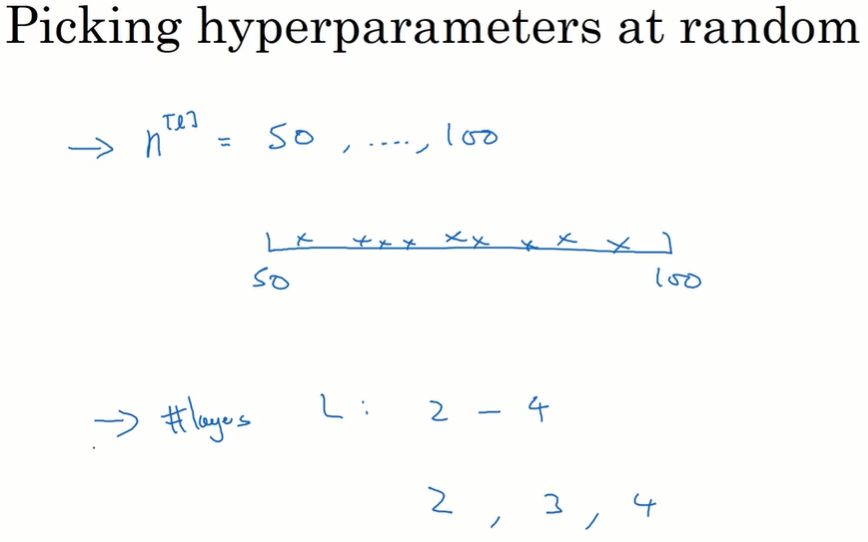 Picking hyperparameters at random
→ n^[l] = 50, ...., 100
50 100
→ #layers L: 2 - 4
2, 3, 4